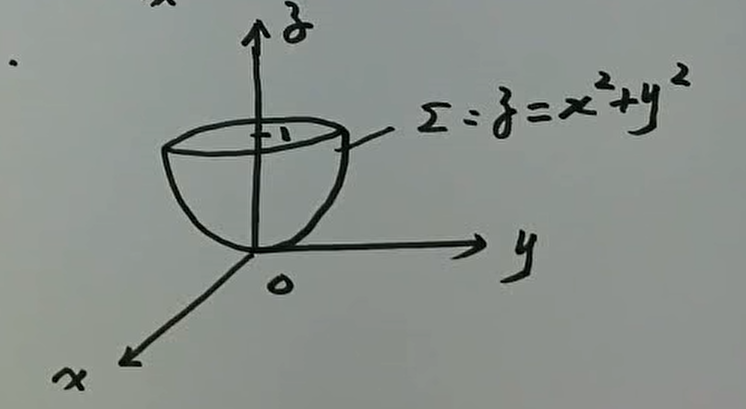 z
1
Σ: z=x²+y²
y
0
x